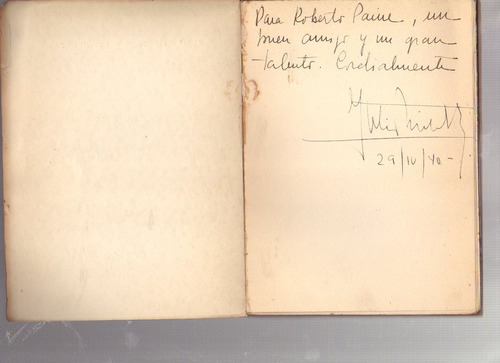 Para Roberto Paine, un
buen amigo y un gran
talento. Cordialmente
29/IV/40-